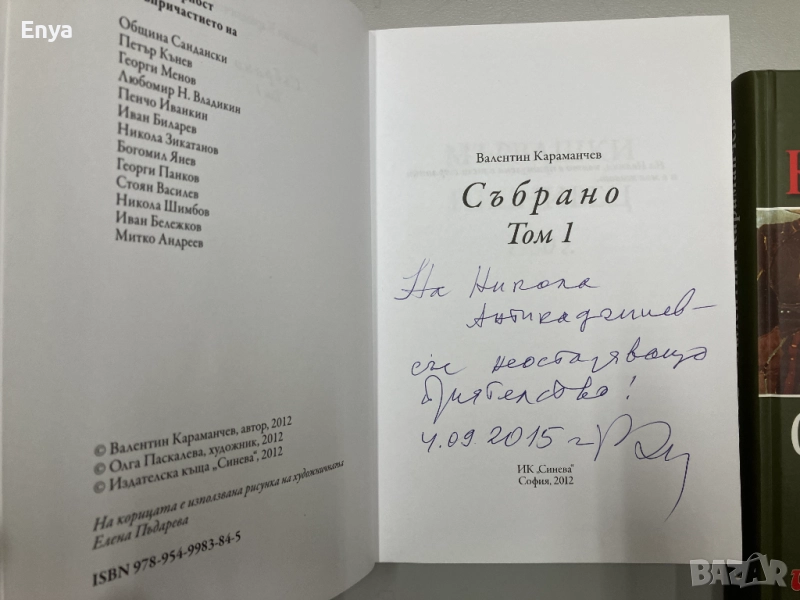 Enya
съпричастието на
Община Сандански
Петър Кънев
Георги Менов
Любомир Н. Владикин
Пенчо Иванкин
Иван Биларев
Никола Зикатанов
Богомил Янев
Георги Панков
Стоян Василев
Никола Шимбов
Иван Бележков
Митко Андреев
© Валентин Караманчев, автор, 2012
© Олга Паскалева, художник, 2012
© Издателска къща „Синева“, 2012
На корицата е използвана рисунка на художничката
Елена Пъдарева
ISBN 978-954-9983-84-5
Валентин Караманчев
Събрано
Том 1
На Никола
Антикаджиев –
със неостаряващо
приятелство!
4.09.2015 г.
ИК „Синева“
София, 2012
BAZAR